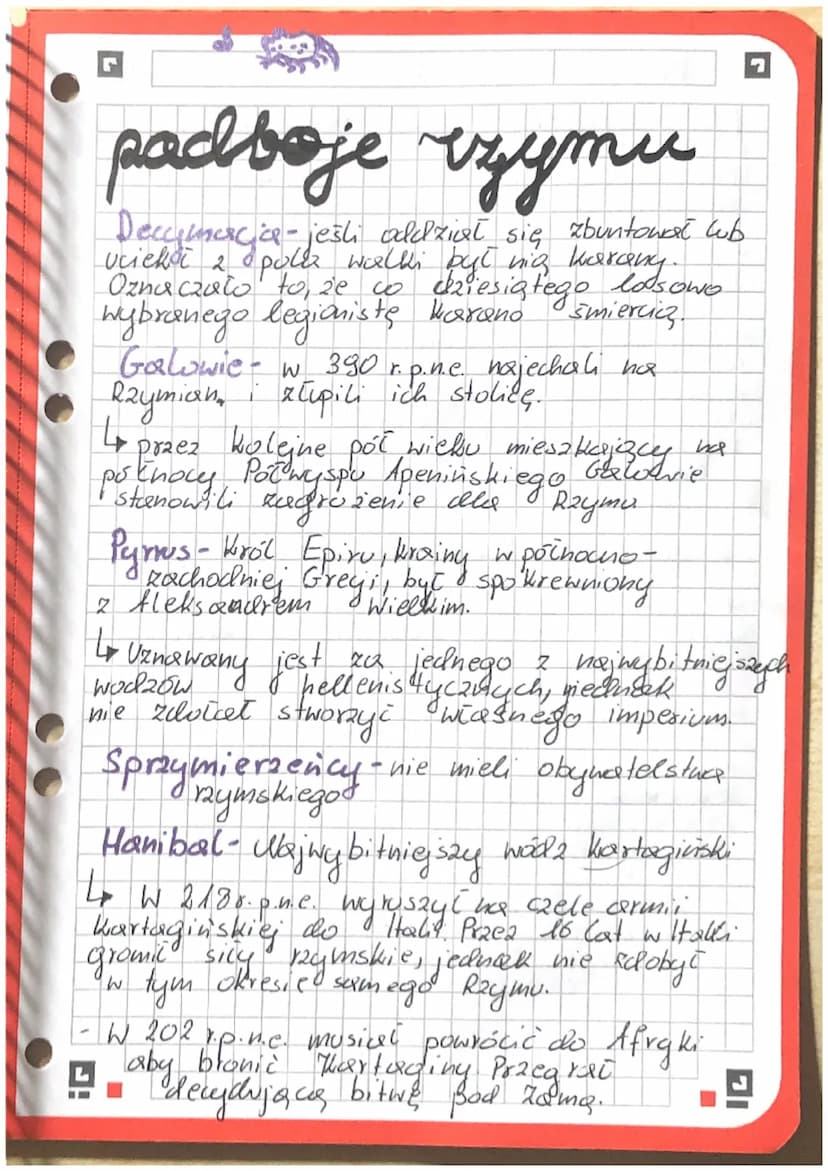 podboje rzymu
Decymacja - jeśli oddział się zbuntował lub
uciekł z pola walki był nią karany.
Oznaczało to, że co dziesiątego losowo
wybranego legionistę karano śmiercią.
Galowie - w 390 r. p.n.e. najechali na
Rzymian, i złupili ich stolicę.
↳ przez kolejne pół wieku mieszkający na
północy Półwyspu Apenińskiego Galowie
stanowili zagrożenie dla Rzymu
Pyrrus - Król Epiru, krainy w północno-
zachodniej Grecji, był spokrewniony
z Aleksandrem Wielkim.
↳ Uznawany jest za jednego z najwybitniejszych
wodzów hellenistycznych, jednak
nie zdołał stworzyć własnego imperium.
Sprzymierzeńcy - nie mieli obywatelstwa
rzymskiego
Hanibal - Najwybitniejszy wódz kartagiński
↳ W 218 r. p.n.e. wyruszył na czele armii
kartagińskiej do Italii. Przez 16 lat w Italii
gromił siły rzymskie, jednak nie zdobył
w tym okresie samego Rzymu.
- W 202 r.p.n.e. musiał powrócić do Afryki
aby bronić Kartaginy. Przegrał
decydującą bitwę pod Zamą.